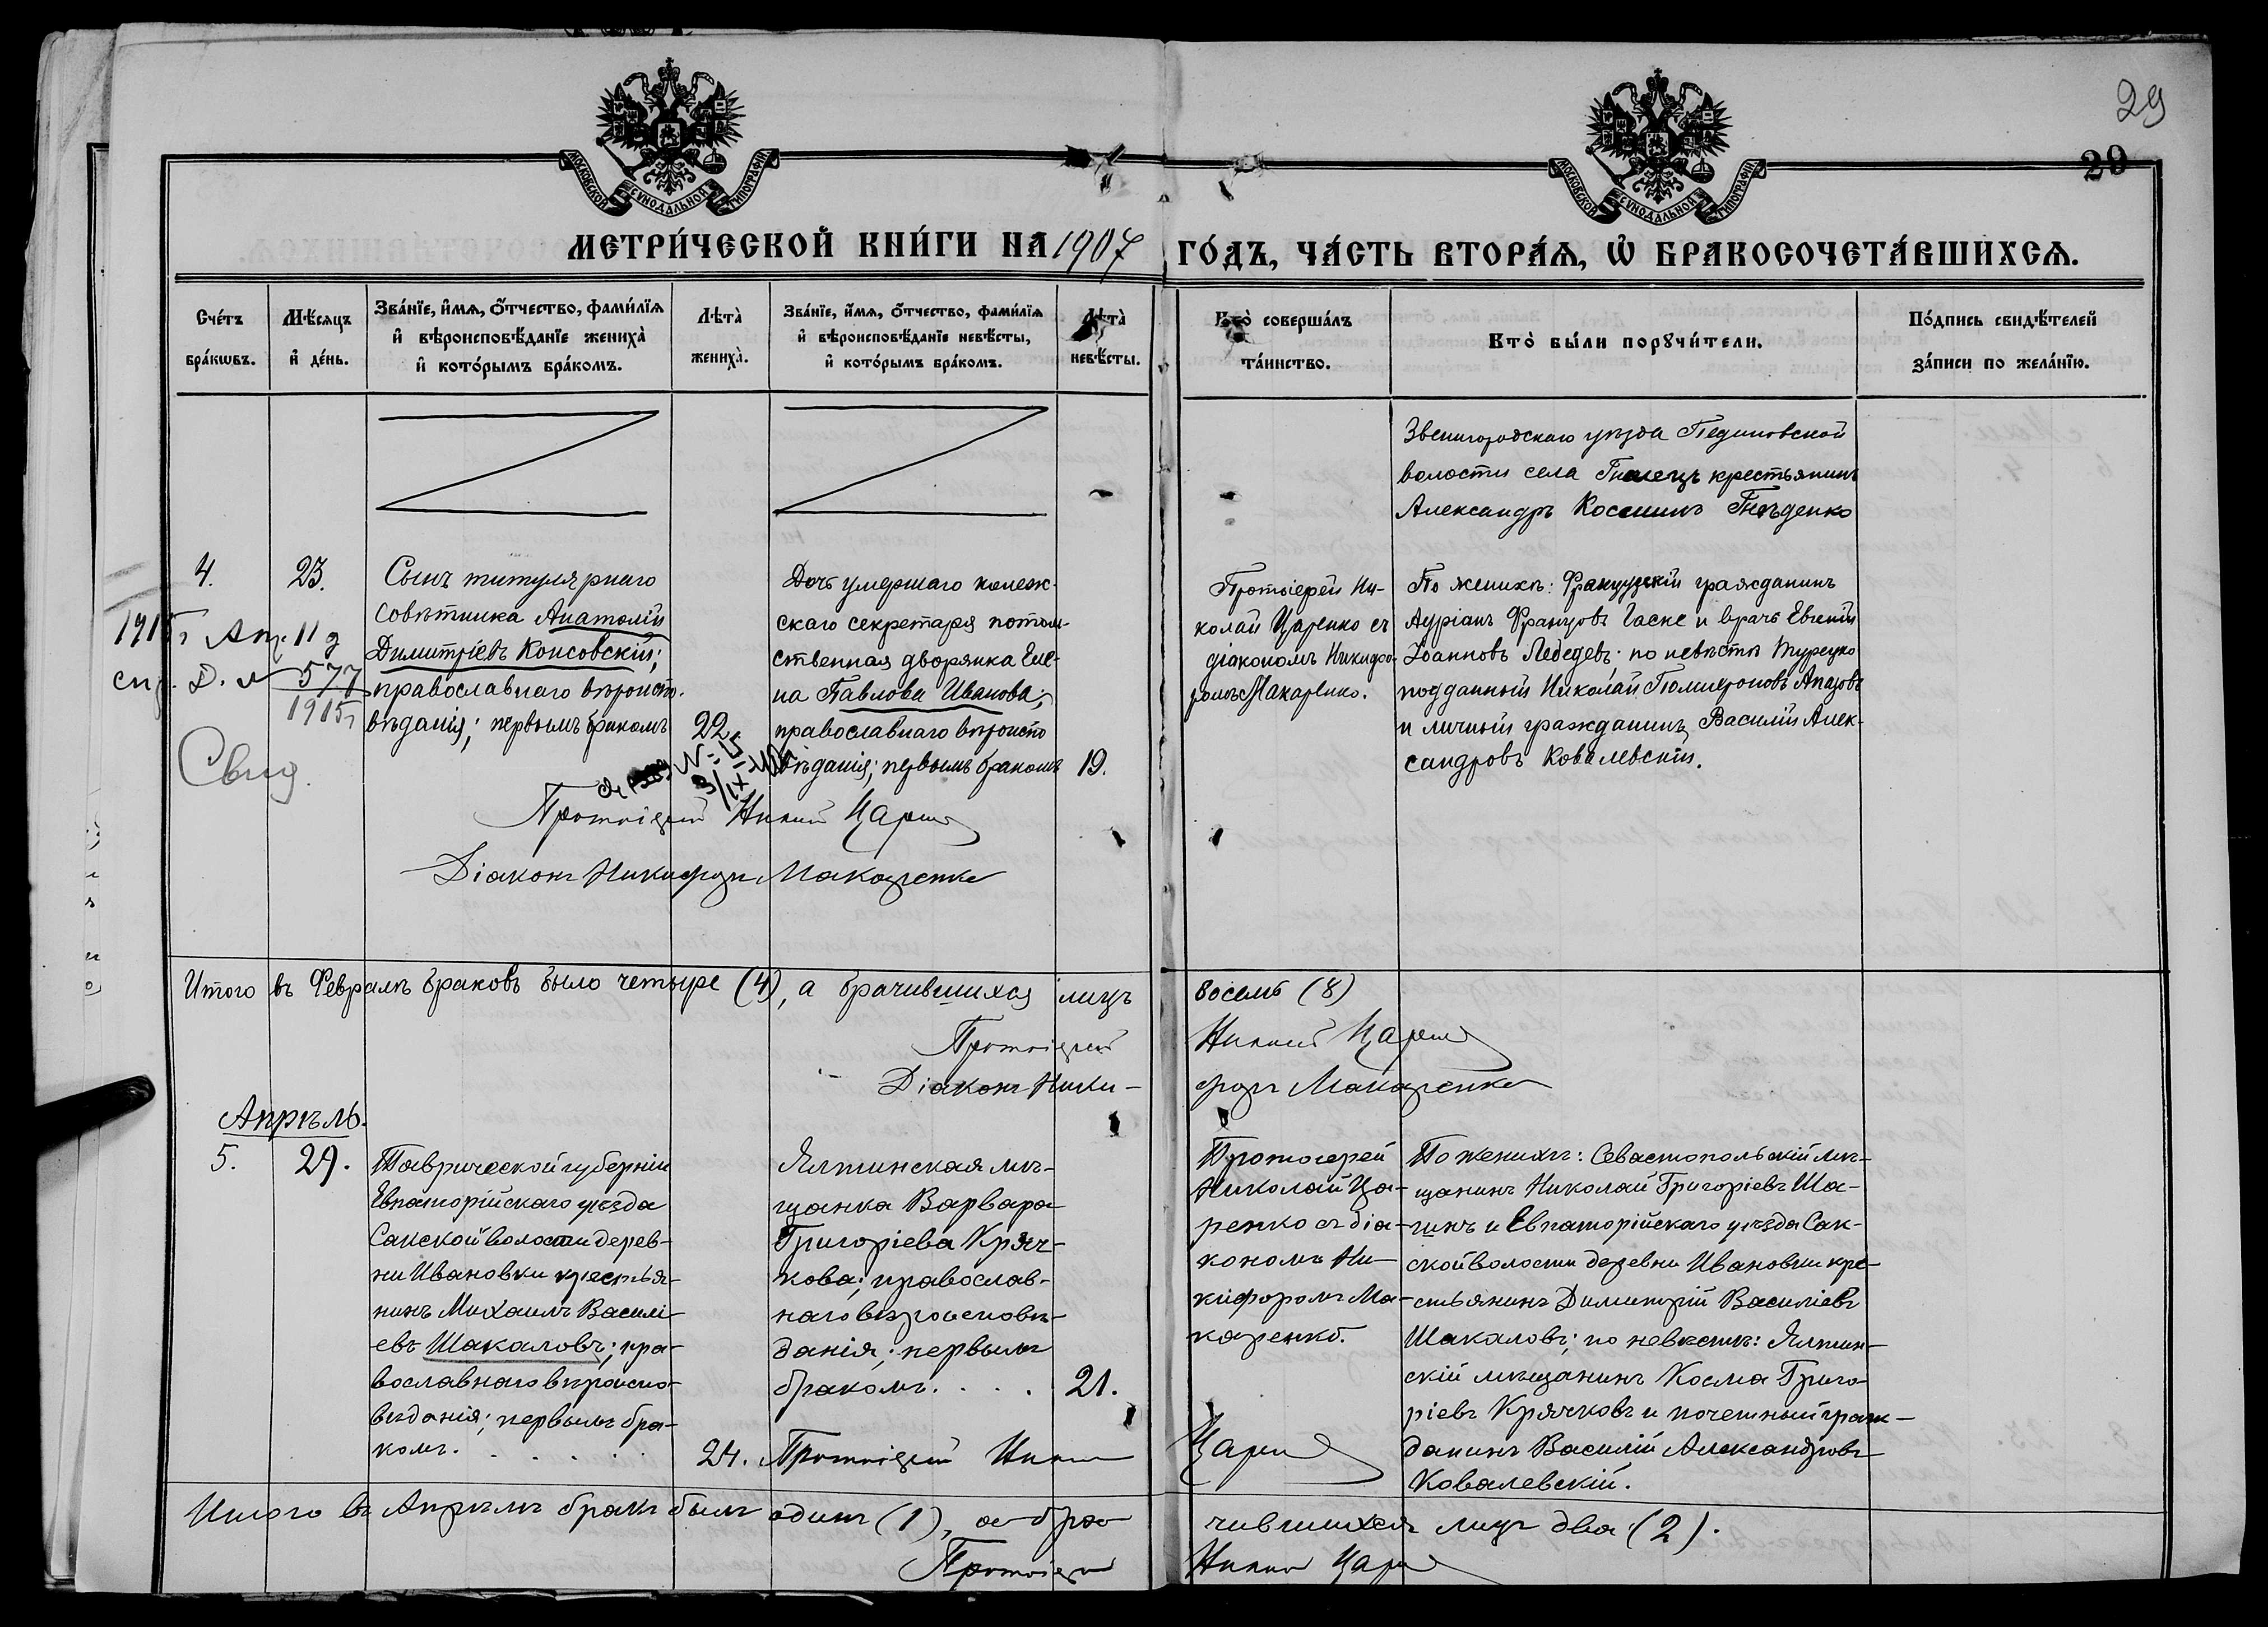 29
29
МОСКОВСКОЙ СѴНОДАЛЬНОЙ ТИПОГРАФІИ
МОСКОВСКОЙ СѴНОДАЛЬНОЙ ТИПОГРАФІИ
МЕТРИ́ЧЕСКОЙ КНИ́ГИ НА 1907 ГО́ДЪ, ЧА́СТЬ ВТОРА́Ѧ, Ѽ БРАКОСОЧЕТА́ВШИХСѦ.
Сче́тъ
бра́кѡвъ.
Мѣ́сяцъ
и҆ де́нь.
Зва́нїе, и҆́мѧ, ѻ҆́тчество, фами́лїѧ
и҆ вѣроисповѣ́данїе жениха̀
и҆ кото́рымъ бра́комъ.
Лѣта̀
жениха̀.
Зва́нїе, и҆́мѧ, ѻ҆́тчество, фами́лїѧ
и҆ вѣроисповѣ́данїе невѣ́сты,
и҆ кото́рымъ бра́комъ.
Лѣта̀
невѣ́сты.
Кто̀ соверша́лъ
та́инство.
Кто̀ бы́ли порꙋчи́тели.
По́дпись свидѣ́телей
за́писи по жела́нїю.
Звенигородскаго уѣзда
волости села крестьянинъ
Александръ Косминъ Гнѣденко
4.
23.
Сынъ титулярнаго
совѣтника Анатолій
Димитріевъ Консовскій;
православнаго вѣроиспо-
вѣданія; первымъ бракомъ
22.
Дочь умершаго коллеж-
скаго секретаря потом-
ственная дворянка Еле-
на Павлова Иванова;
православнаго вѣроиспо
вѣданія; первымъ бракомъ
19.
Протоіерей Ни-
колай Царенко съ
діакономъ Никифо-
ромъ Макаренко.
По женихѣ: Французскій гражданинъ
Адріанъ Францовъ Гаске и врачъ Евгеній
Іоанновъ Лебедевъ; по невѣстѣ Турецко
подданный Николай Апазовъ
и личный гражданинъ Василій Алек-
сандровъ Ковалевскій.
1915 г Ап. 11 д
577
1915 г
Свид.
Протоіерей Никол Царен
Діаконъ Никифоръ Макаренко
Итого въ Февралѣ браковъ было четыре (4), а брачившихся лицъ восемь (8)
Протоіерей Никол Царен
Діаконъ Ники-форъ Макаренко
Апрѣль.
5.
29.
Таврической губерніи
Евпаторійскаго уѣзда
Сакской волости дерев-
ни Ивановки крестья-
нинъ Михаилъ Василі-
евъ Шакаловъ; пра-
вославнаго вѣроиспо-
вѣданія; первымъ бра-
комъ. . . . . .
24.
Ялтинская мѣ-
щанка Варвара
Григоріева Кряч-
кова; православ-
наго вѣроисповѣ-
данія; первымъ
бракомъ. . . .
21.
Протоіерей
Николай Ца-
ренко съ діа-
кономъ Ни-
кифоромъ Ма-
каренко.
По женихѣ: Севастопольскій мѣ-
щанинъ Николай Григоріевъ Ша-
гинъ и Евпаторійскаго уѣзда Сак-
ской волости деревни Ивановки кре-
стьянинъ Димитрій Василіевъ
Шакаловъ; по невѣстѣ: Ялтин-
скій мѣщанинъ Косма Григо-
ріевъ Крячковъ и почетный граж-
данинъ Василій Александровъ
Ковалевскій.
Протоіерей Никол Царен
Итого въ Апрѣлѣ бракъ былъ одинъ (1), а бра чившихся лицъ два (2).
Протоіерей Никол Царен